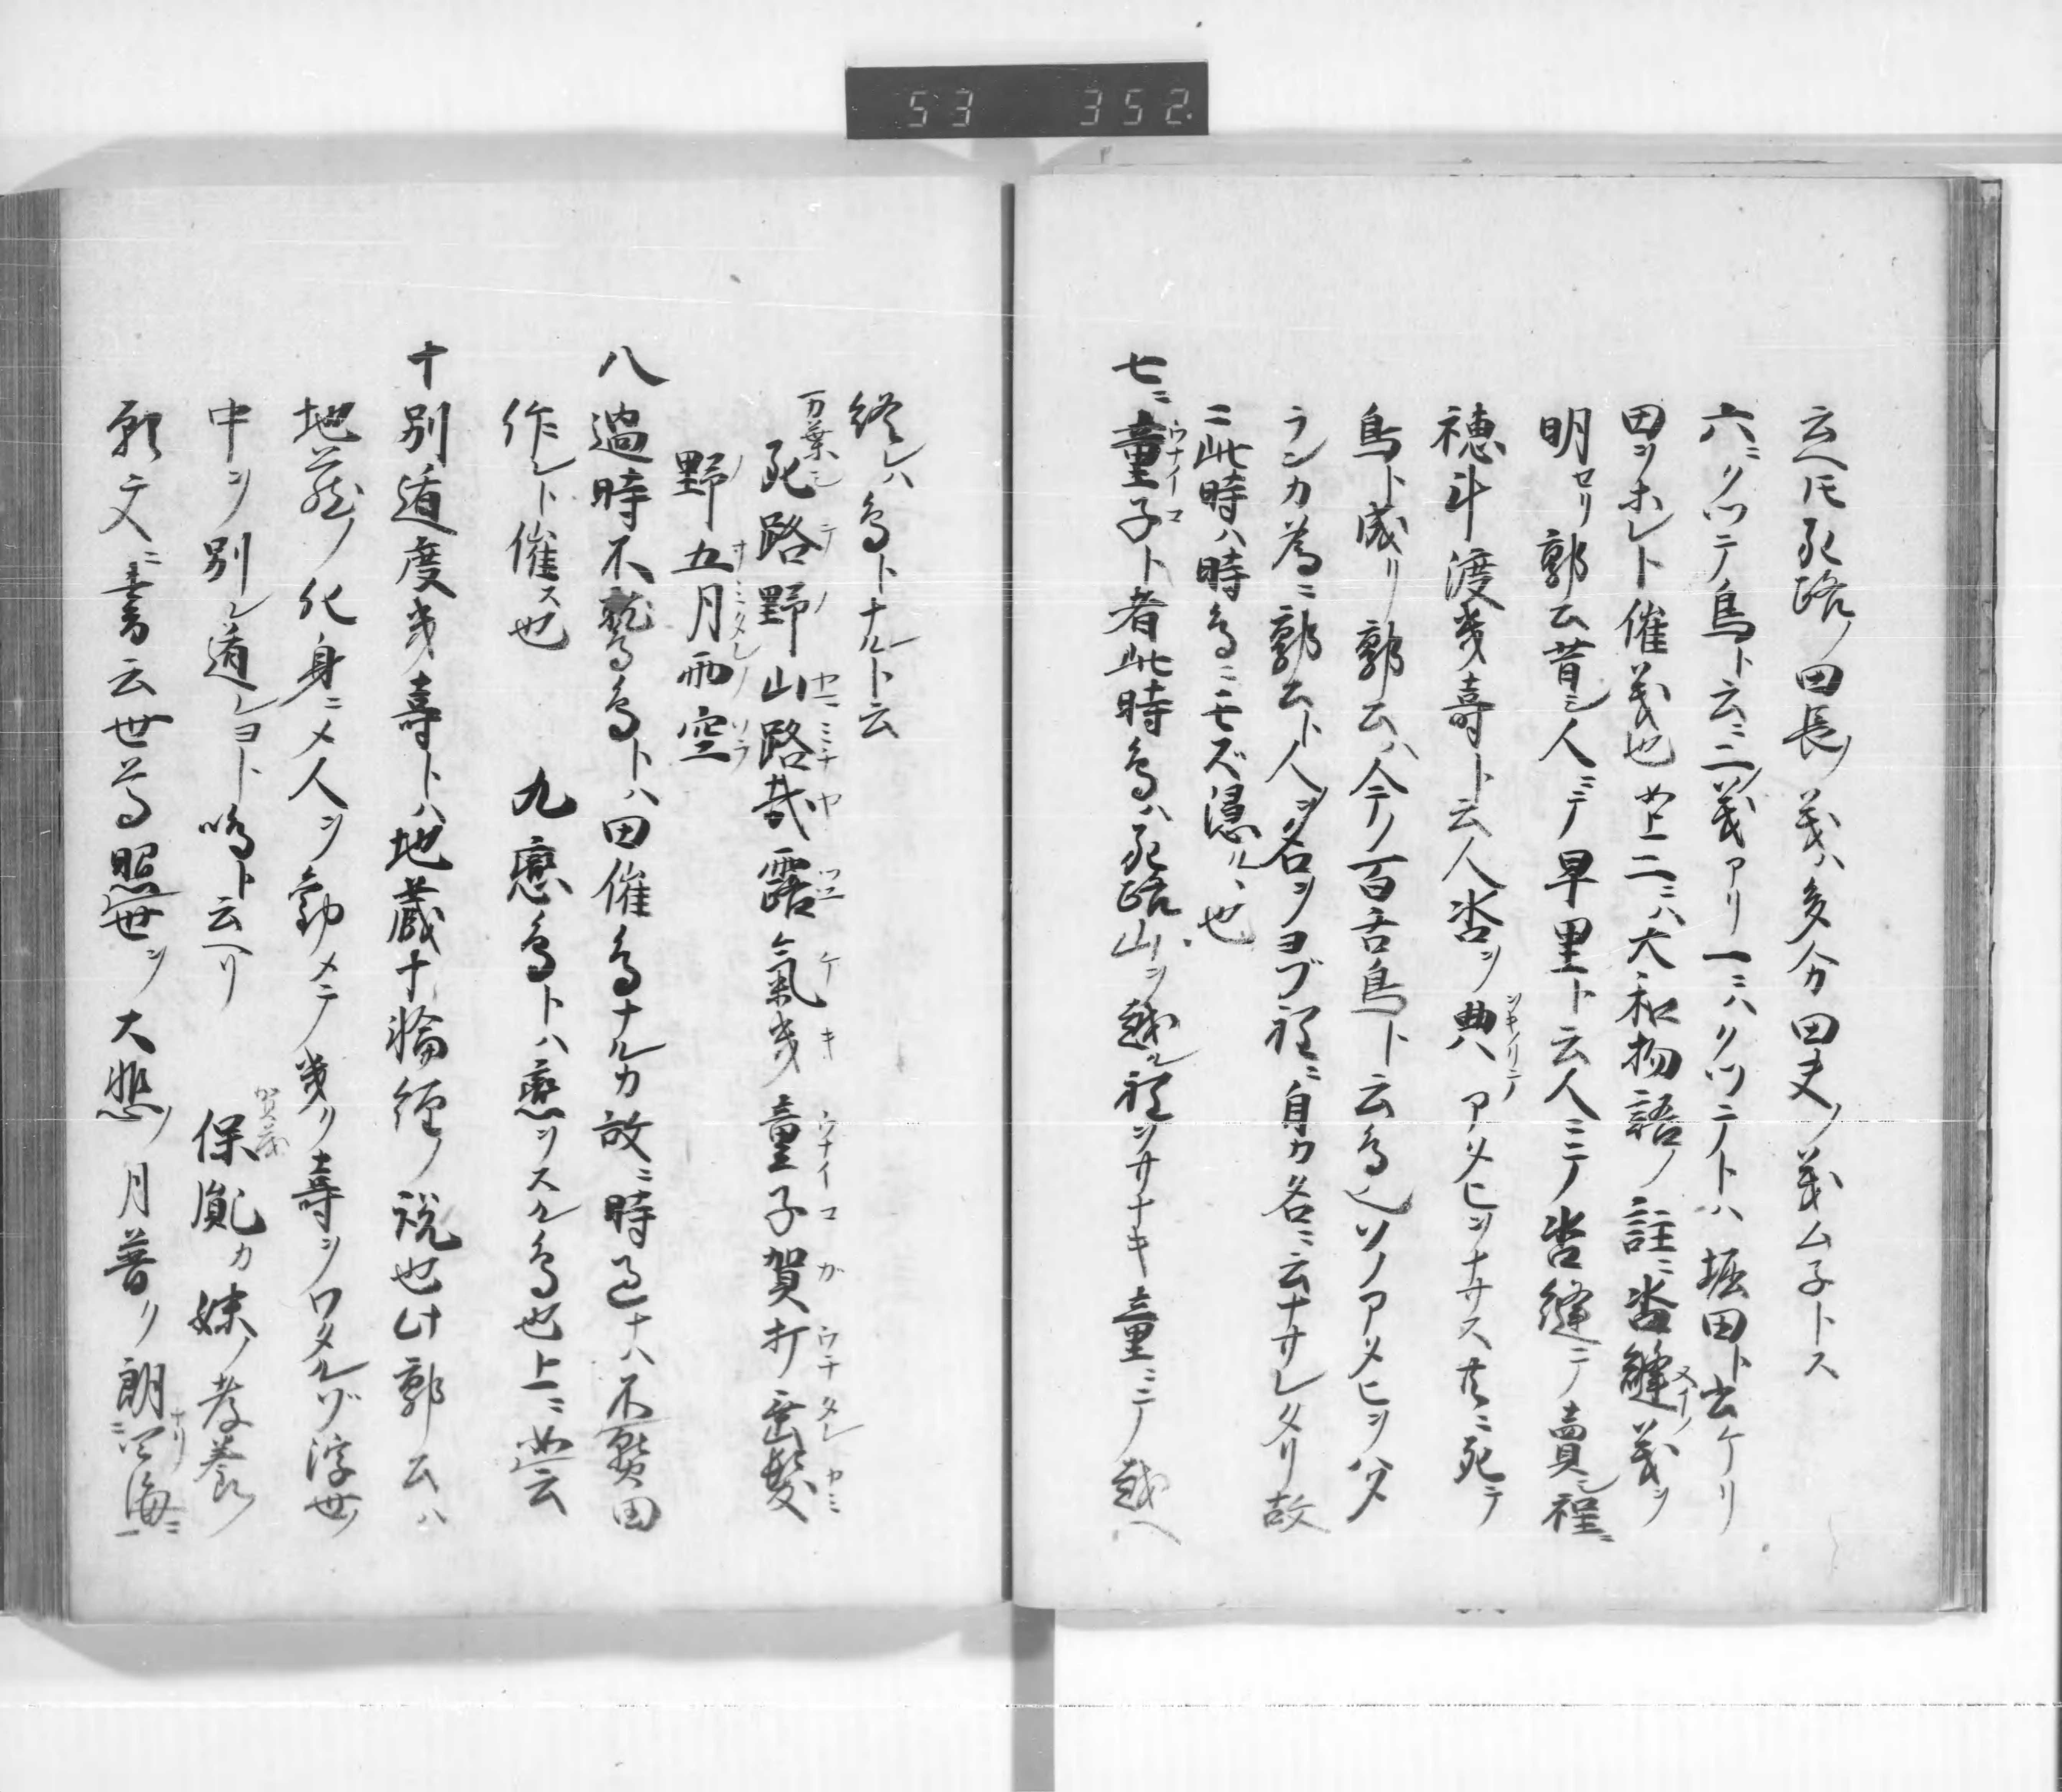 53 352.
云ヘ𪜈死路ノ田長ノ義ハ多分田夫ノ義ム子トス
六ニクツテ鳥ト云ニ二ノ義アリ一ニハクツテトハ堀田ト云ケリ
田ヲホレト催義也如上二ニハ大和物語ノ註ニ沓縫ノ義ヲ
明セリ郭公昔シ人ニテ早里ト云人ニテ沓縫ニテ賣シ程ニ
穂斗渡幾壽ト云人沓ヲ典ツキノリテアタヒヲナサス共ニ死テ
鳥ト成リ郭公ハ今ノ百舌鳥ト云鳥也ソノアタヒヲハタ
ランカ為ニ郭公ト人ヲ名ヲヨブ程ニ自カ名ニ云ナサレタリ故
ニ此時ハ時鳥ニモズ隱ル丶也
七ニ童子ウナイコト者此時鳥ハ死路山ヲ越ル程ヲサナキ童ニテ越ヘ
終レハ鳥トナルト云
万葉ニ死路野山路哉露氣幾童子賀打垂髮
シテノヤマミチヤツユケキウナイコガウチタレカミ
野五月雨空
ノサミタレノソラ
八過時不熟鳥トハ田催鳥ナルカ故ニ時過ナハ不熟田
作レト催ス也 九戀鳥トハ戀ヲスル鳥也上ニ如云
十別道度幾壽トハ地藏十輪經ノ説也此郭公ハ
地蔵ノ化身ニメ人ヲ勸メテ幾リ壽ヲワタルゾ浮世ノ
中ヲ別レ道レヨト鳴ト云ヘリ 賀茂保胤カ妹ノ孝養ノ
願文ニ書云世尊照世ヲ大悲ノ月普ク朗ナリ四海ニ